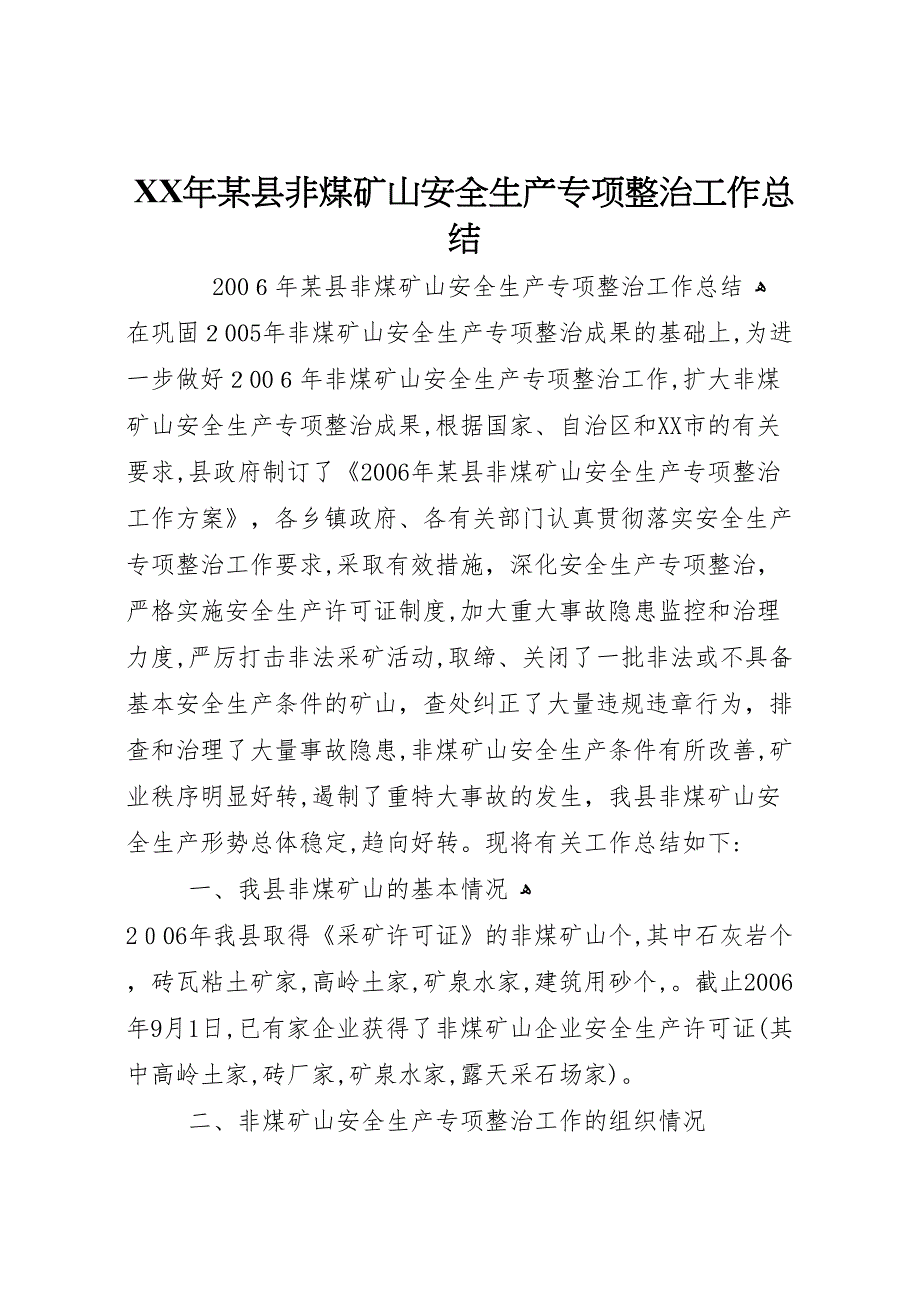 XX年某县非煤矿山安全生产专项整治工作总
结
2006年某县非煤矿山安全生产专项整治工作总结ﻫ
在巩固2005年非煤矿山安全生产专项整治成果的基础上,为进
一步做好2006年非煤矿山安全生产专项整治工作,扩大非煤
矿山安全生产专项整治成果,根据国家、自治区和XX市的有关
要求,县政府制订了《2006年某县非煤矿山安全生产专项整治
工作方案》，各乡镇政府、各有关部门认真贯彻落实安全生产
专项整治工作要求,采取有效措施，深化安全生产专项整治，
严格实施安全生产许可证制度,加大重大事故隐患监控和治理
力度,严厉打击非法采矿活动,取缔、关闭了一批非法或不具备
基本安全生产条件的矿山，查处纠正了大量违规违章行为，排
查和治理了大量事故隐患,非煤矿山安全生产条件有所改善,矿
业秩序明显好转,遏制了重特大事故的发生，我县非煤矿山安
全生产形势总体稳定,趋向好转。现将有关工作总结如下:
一、我县非煤矿山的基本情况ﻫ
2006年我县取得《采矿许可证》的非煤矿山个,其中石灰岩个
，砖瓦粘土矿家,高岭土家,矿泉水家,建筑用砂个,。截止2006
年9月1日,已有家企业获得了非煤矿山企业安全生产许可证(其
中高岭土家,砖厂家,矿泉水家,露天采石场家)。
二、非煤矿山安全生产专项整治工作的组织情况